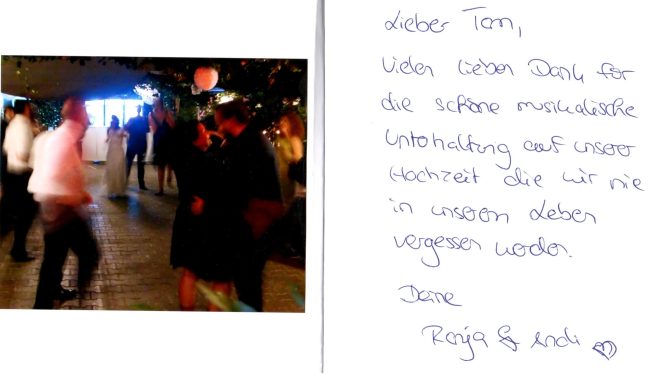 Lieber Tom,
vielen lieben Dank für
die schöne musikalische
Unterhaltung auf unserer
Hochzeit die wir nie
in unserem Leben
vergessen werden.
Deine
Ronja & Andi